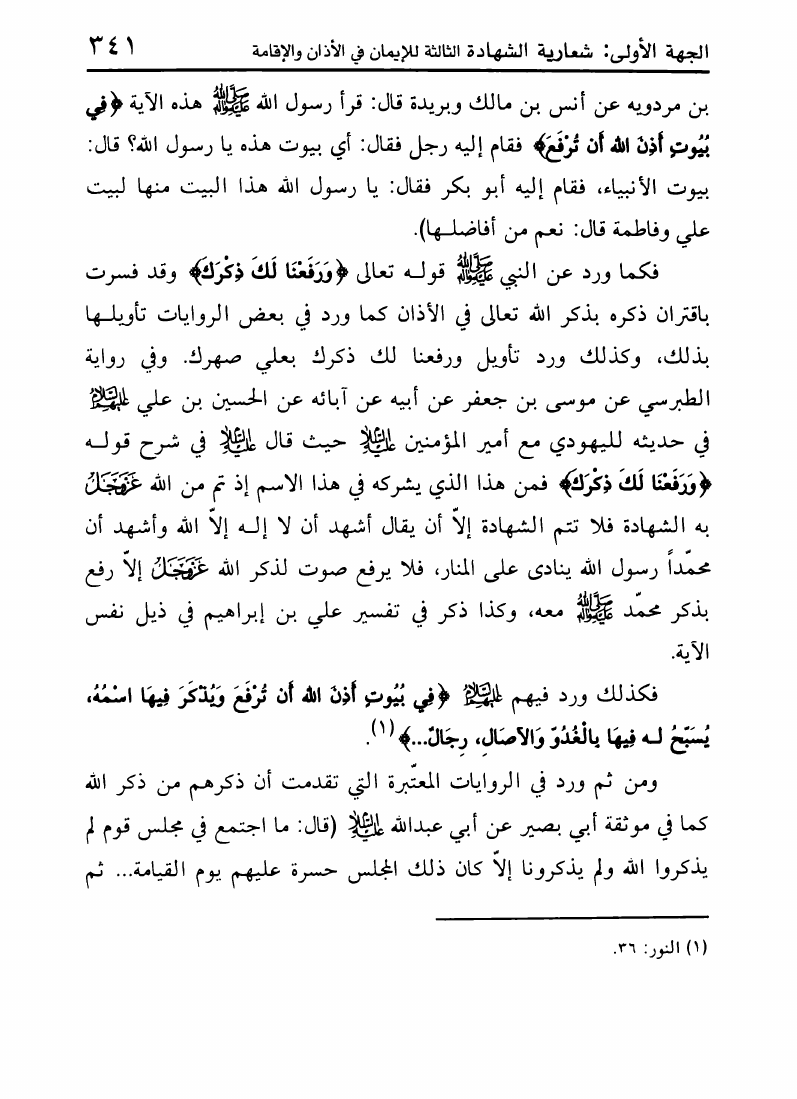 الجهة الأولى: شعارية الشهادة الثالثة للإيمان في الأذان والإقامة ٣٤١
بن مردويه عن أنس بن مالك وبريدة قال: قرأ رسول الله ﷺ هذه الآية ﴿فِي
بُيُوتٍ أَذِنَ الله أَن تُرْفَعَ﴾ فقام إليه رجل فقال: أي بيوت هذه يا رسول الله؟ قال:
بيوت الأنبياء، فقام إليه أبو بكر فقال: يا رسول الله هذا البيت منها لبيت
علي وفاطمة قال: نعم من أفاضلها).
فكما ورد عن النبي ﷺ قوله تعالى ﴿وَرَفَعْنَا لَكَ ذِكْرَكَ﴾ وقد فسرت
باقتران ذكره بذكر الله تعالى في الأذان كما ورد في بعض الروايات تأويلها
بذلك، وكذلك ورد تأويل ورفعنا لك ذكرك بعلي صهرك. وفي رواية
الطبرسي عن موسى بن جعفر عن أبيه عن آبائه عن الحسين بن علي عليهم السلام
في حديثه لليهودي مع أمير المؤمنين عليه السلام حيث قال عليه السلام في شرح قوله
﴿وَرَفَعْنَا لَكَ ذِكْرَكَ﴾ فمن هذا الذي يشركه في هذا الاسم إذ تم من الله عز وجل
به الشهادة فلا تتم الشهادة إلاّ أن يقال أشهد أن لا إله إلاّ الله وأشهد أن
محمّداً رسول الله ينادى على المنار، فلا يرفع صوت لذكر الله عز وجل إلاّ رفع
بذكر محمّد ﷺ معه، وكذا ذكر في تفسير علي بن إبراهيم في ذيل نفس
الآية.
فكذلك ورد فيهم عليهم السلام ﴿فِي بُيُوتٍ أَذِنَ الله أَن تُرْفَعَ وَيُذْكَرَ فِيهَا اسْمُهُ،
يُسَبِّحُ لَه فِيهَا بِالْغُدُوِّ وَالآصَالِ، رِجَالٌ...﴾(١).
ومن ثم ورد في الروايات المعتّبرة التي تقدمت أن ذكرهم من ذكر الله
كما في موثقة أبي بصير عن أبي عبدالله عليه السلام (قال: ما اجتمع في مجلس قوم لم
يذكروا الله ولم يذكرونا إلاّ كان ذلك المجلس حسرة عليهم يوم القيامة... ثم
(١) النور: ٣٦.